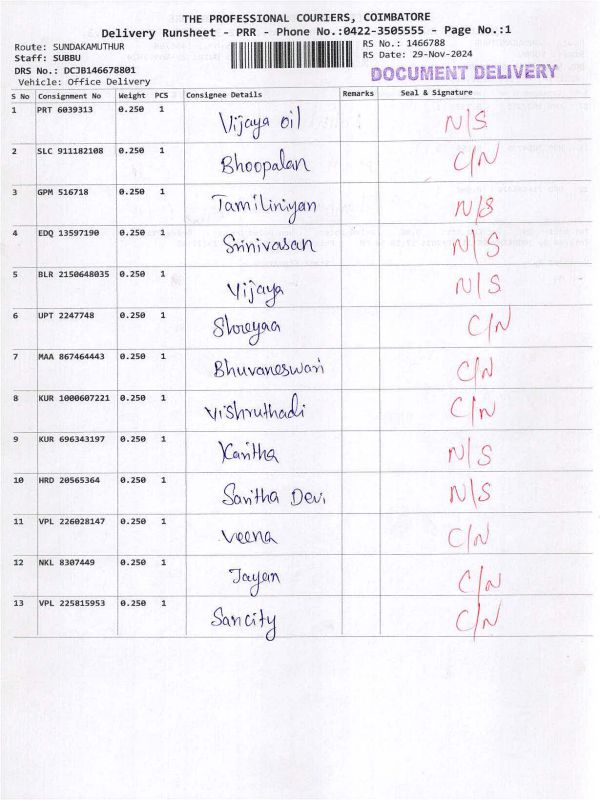 THE PROFESSIONAL COURIERS, COIMBATORE
Delivery Runsheet - PRR - Phone No.:0422-3505555 - Page No.:1
Route: SUNDAKAMUTHUR
RS No.: 1466788
Staff: SUBBU
RS Date: 29-Nov-2024
DRS No.: DCJB146678801
DOCUMENT DELIVERY
Vehicle: Office Delivery
S No Consignment No Weight PCS Consignee Details Remarks Seal & Signature
1 PRT 6039313 0.250 1 Vijaya oil N/S
2 SLC 911182108 0.250 1 Bhoopalan C/N
3 GPM 516718 0.250 1 Tamiliniyan N/S
4 EDQ 13597190 0.250 1 Srinivasan N/S
5 BLR 2150648035 0.250 1 Vijaya N/S
6 UPT 2247748 0.250 1 Shreyaa C/N
7 MAA 867464443 0.250 1 Bhuvaneswari C/N
8 KUR 1000607221 0.250 1 Vishruthadi C/N
9 KUR 696343197 0.250 1 Kavitha N/S
10 HRD 20565364 0.250 1 Savitha Devi N/S
11 VPL 226028147 0.250 1 Veena C/N
12 NKL 8307449 0.250 1 Jayan C/N
13 VPL 225815953 0.250 1 Sancity C/N